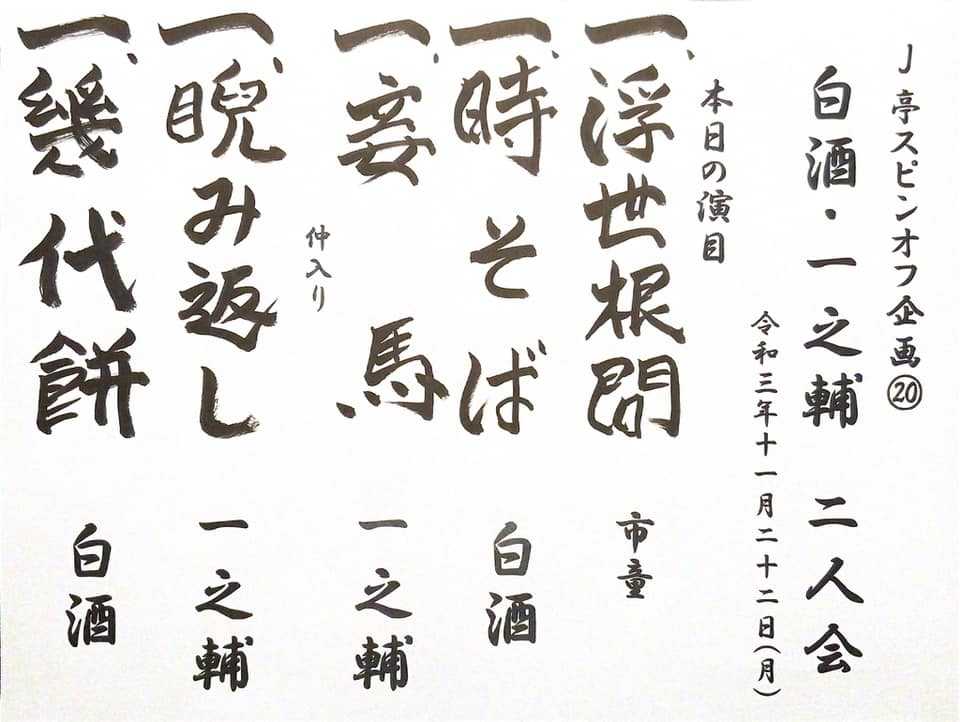 J亭スピンオフ企画⑳
白酒・一之輔 二人会
令和三年十一月二十二日(月)
本日の演目
一、浮世根問 市童
一、時そば 白酒
一、妾馬 一之輔
仲入り
一、睨み返し 一之輔
一、幾代餅 白酒